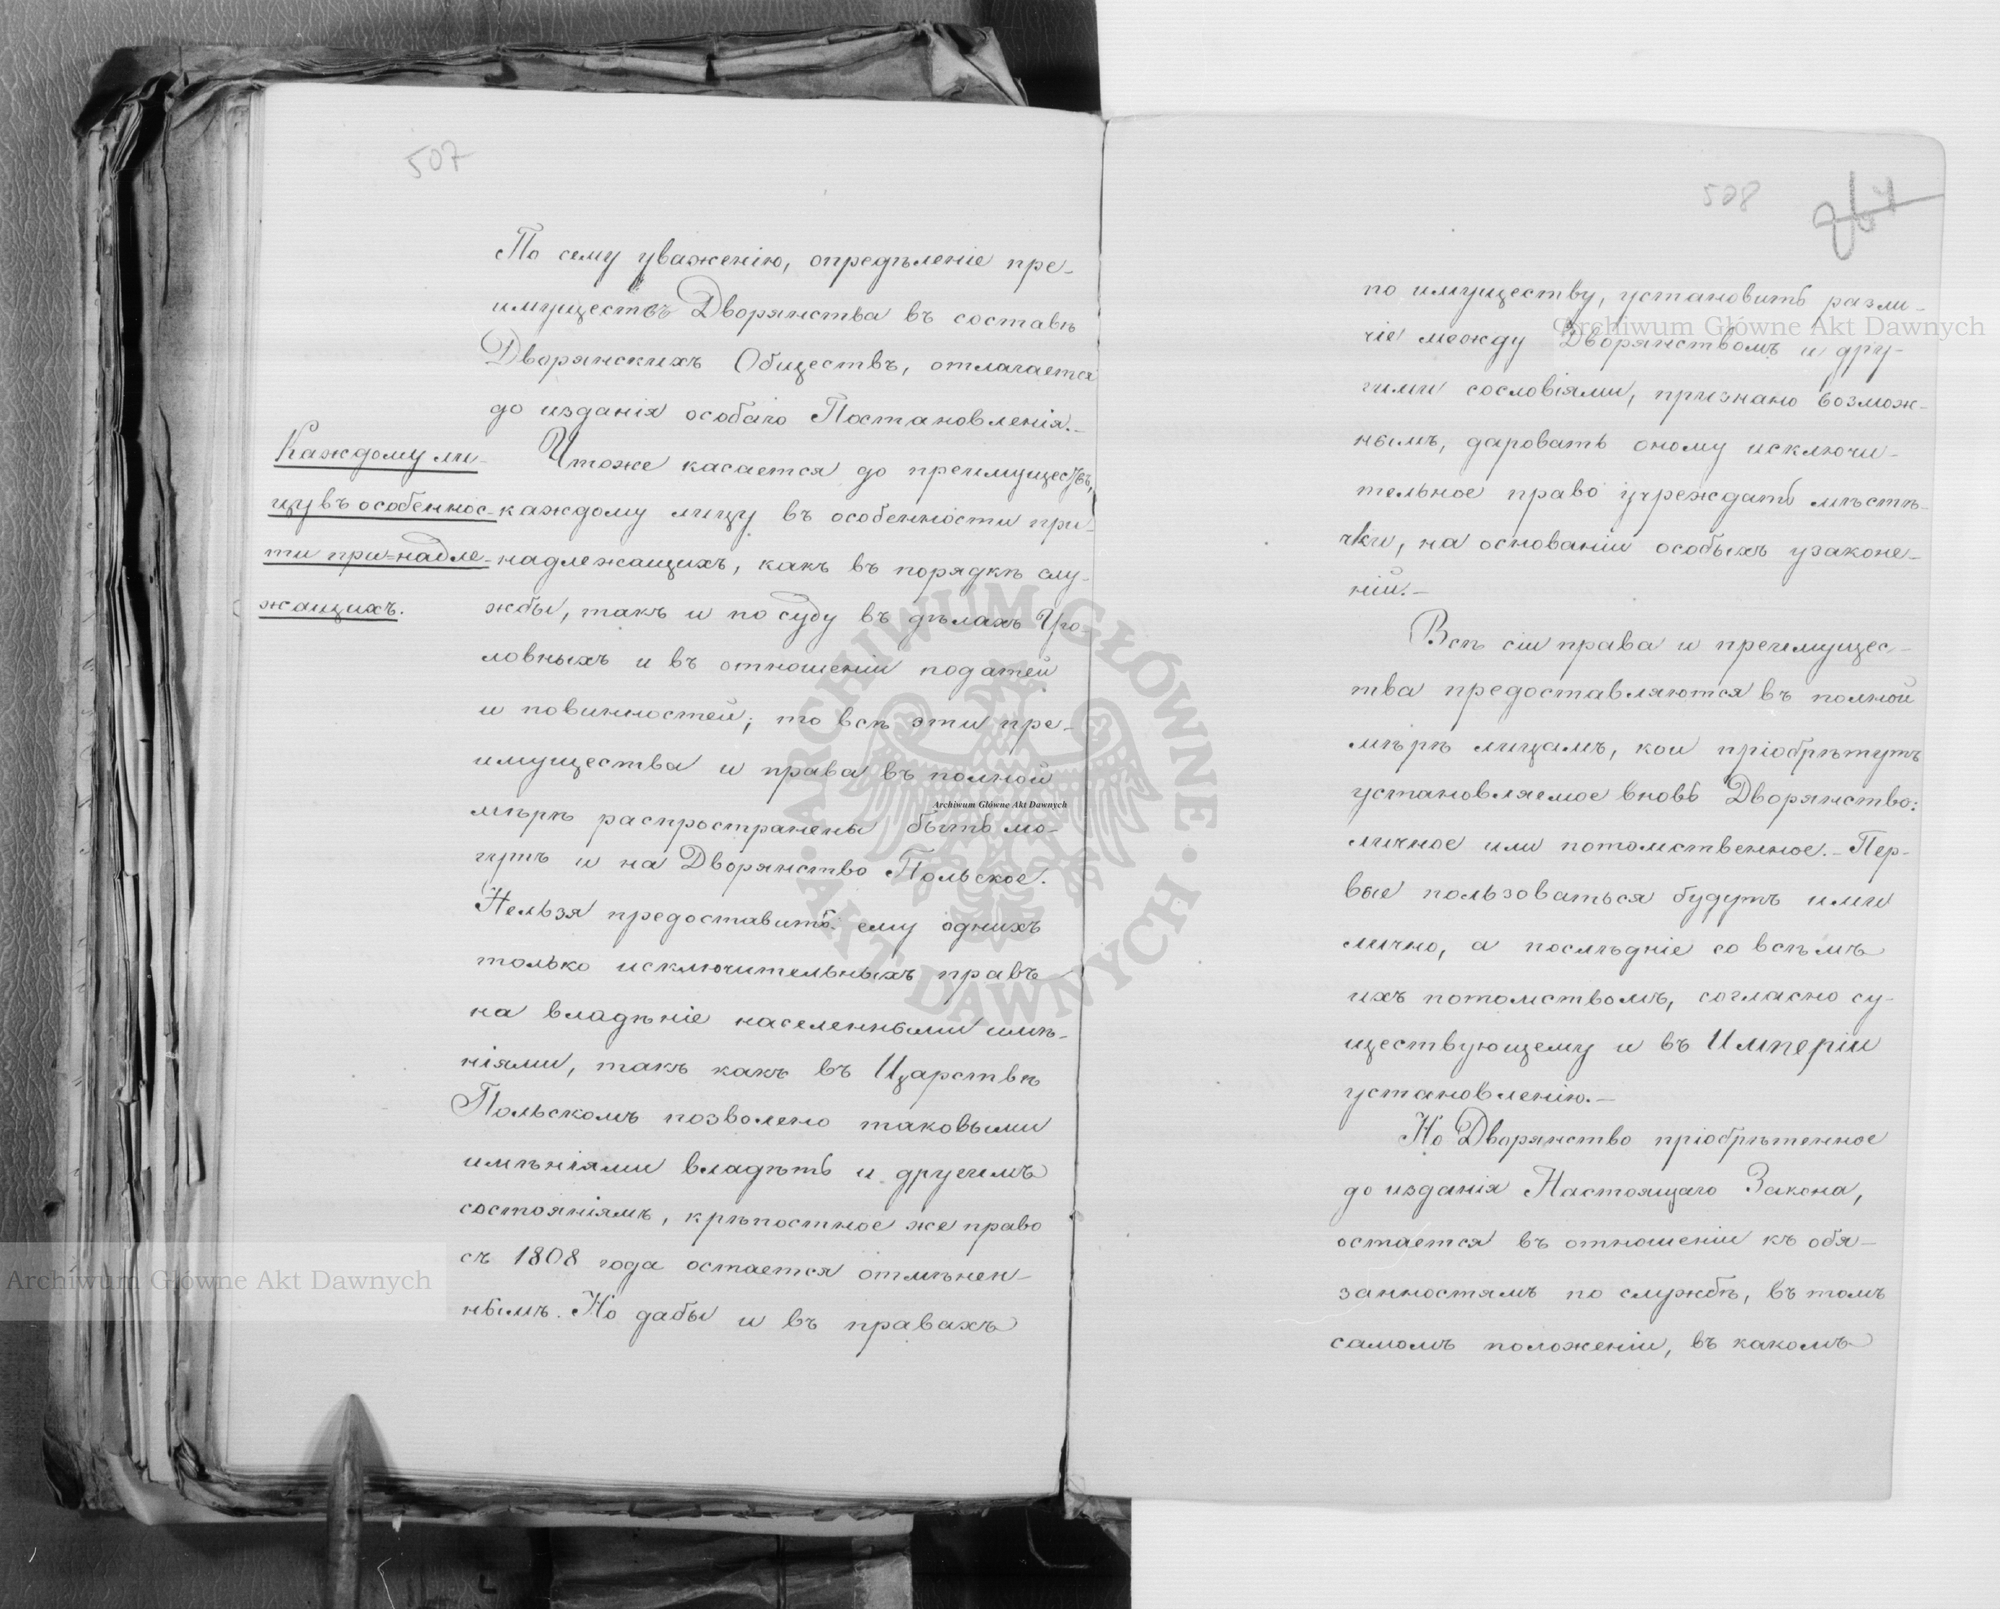 507
По сему уваженію, опредѣленіе пре-
имуществъ Дворянства въ составѣ
Дворянскихъ Обществъ, отлагается
до изданія особаго Постановленія.-
Каждому ли-
цу въ особеннос-
ти при-надле-
жащихъ.
Чтоже касается до преимуществъ,
каждому лицу въ особенности при-
надлежащихъ, какъ въ порядкѣ слу-
жбы, такъ и по суду въ дѣлахъ Уго-
ловныхъ и въ отношеніи податей
и повинностей; то всѣ эти пре-
имущества и права въ полной
мѣрѣ распространены быть мо-
гутъ и на Дворянство Польское.
Нельзя предоставить ему однихъ
только исключительныхъ правъ
на владѣніе населенными имѣ-
ніями, такъ какъ въ Царствѣ
Польскомъ позволено таковыми
имѣніями владѣть и другимъ
состояніямъ, крѣпостное же право
съ 1808 года остается отмѣнен-
нымъ. Но дабы и въ правахъ
508
по имуществу, установить разли-
чіе между Дворянствомъ и дру-
гими сословіями, признано возмож-
нымъ, даровать оному исключи-
тельное право учреждать мѣстѣ-
чки, на основаніи особыхъ узаконе-
ній.-
Всѣ сіи права и преимущес-
тва предоставляются въ полной
мѣрѣ лицамъ, кои пріобрѣтутъ
установляемое вновь Дворянство:
личное или потомственное.- Пер-
вые пользоваться будутъ ими
лично, а послѣдніе со всѣмъ
ихъ потомствомъ, согласно су-
ществующему и въ Имперіи
установленію.-
Но Дворянство пріобрѣтенное
до изданія Настоящаго Закона,
остается въ отношеніи къ обя-
занностямъ по службѣ, въ томъ
самомъ положеніи, въ какомъ
Archiwum Główne Akt Dawnych
Archiwum Główne Akt Dawnych
Archiwum Główne Akt Dawnych
ARCHIWUM GŁÓWNE · AKT DAWNYCH ·